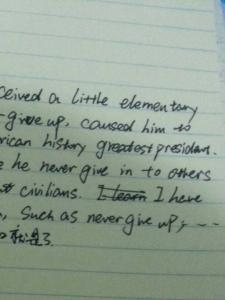 ceived a little elementary
give up, caused him to
rican history greatest president.
e he never give in to others
civilians. I learn I have
, such as never give up, ---